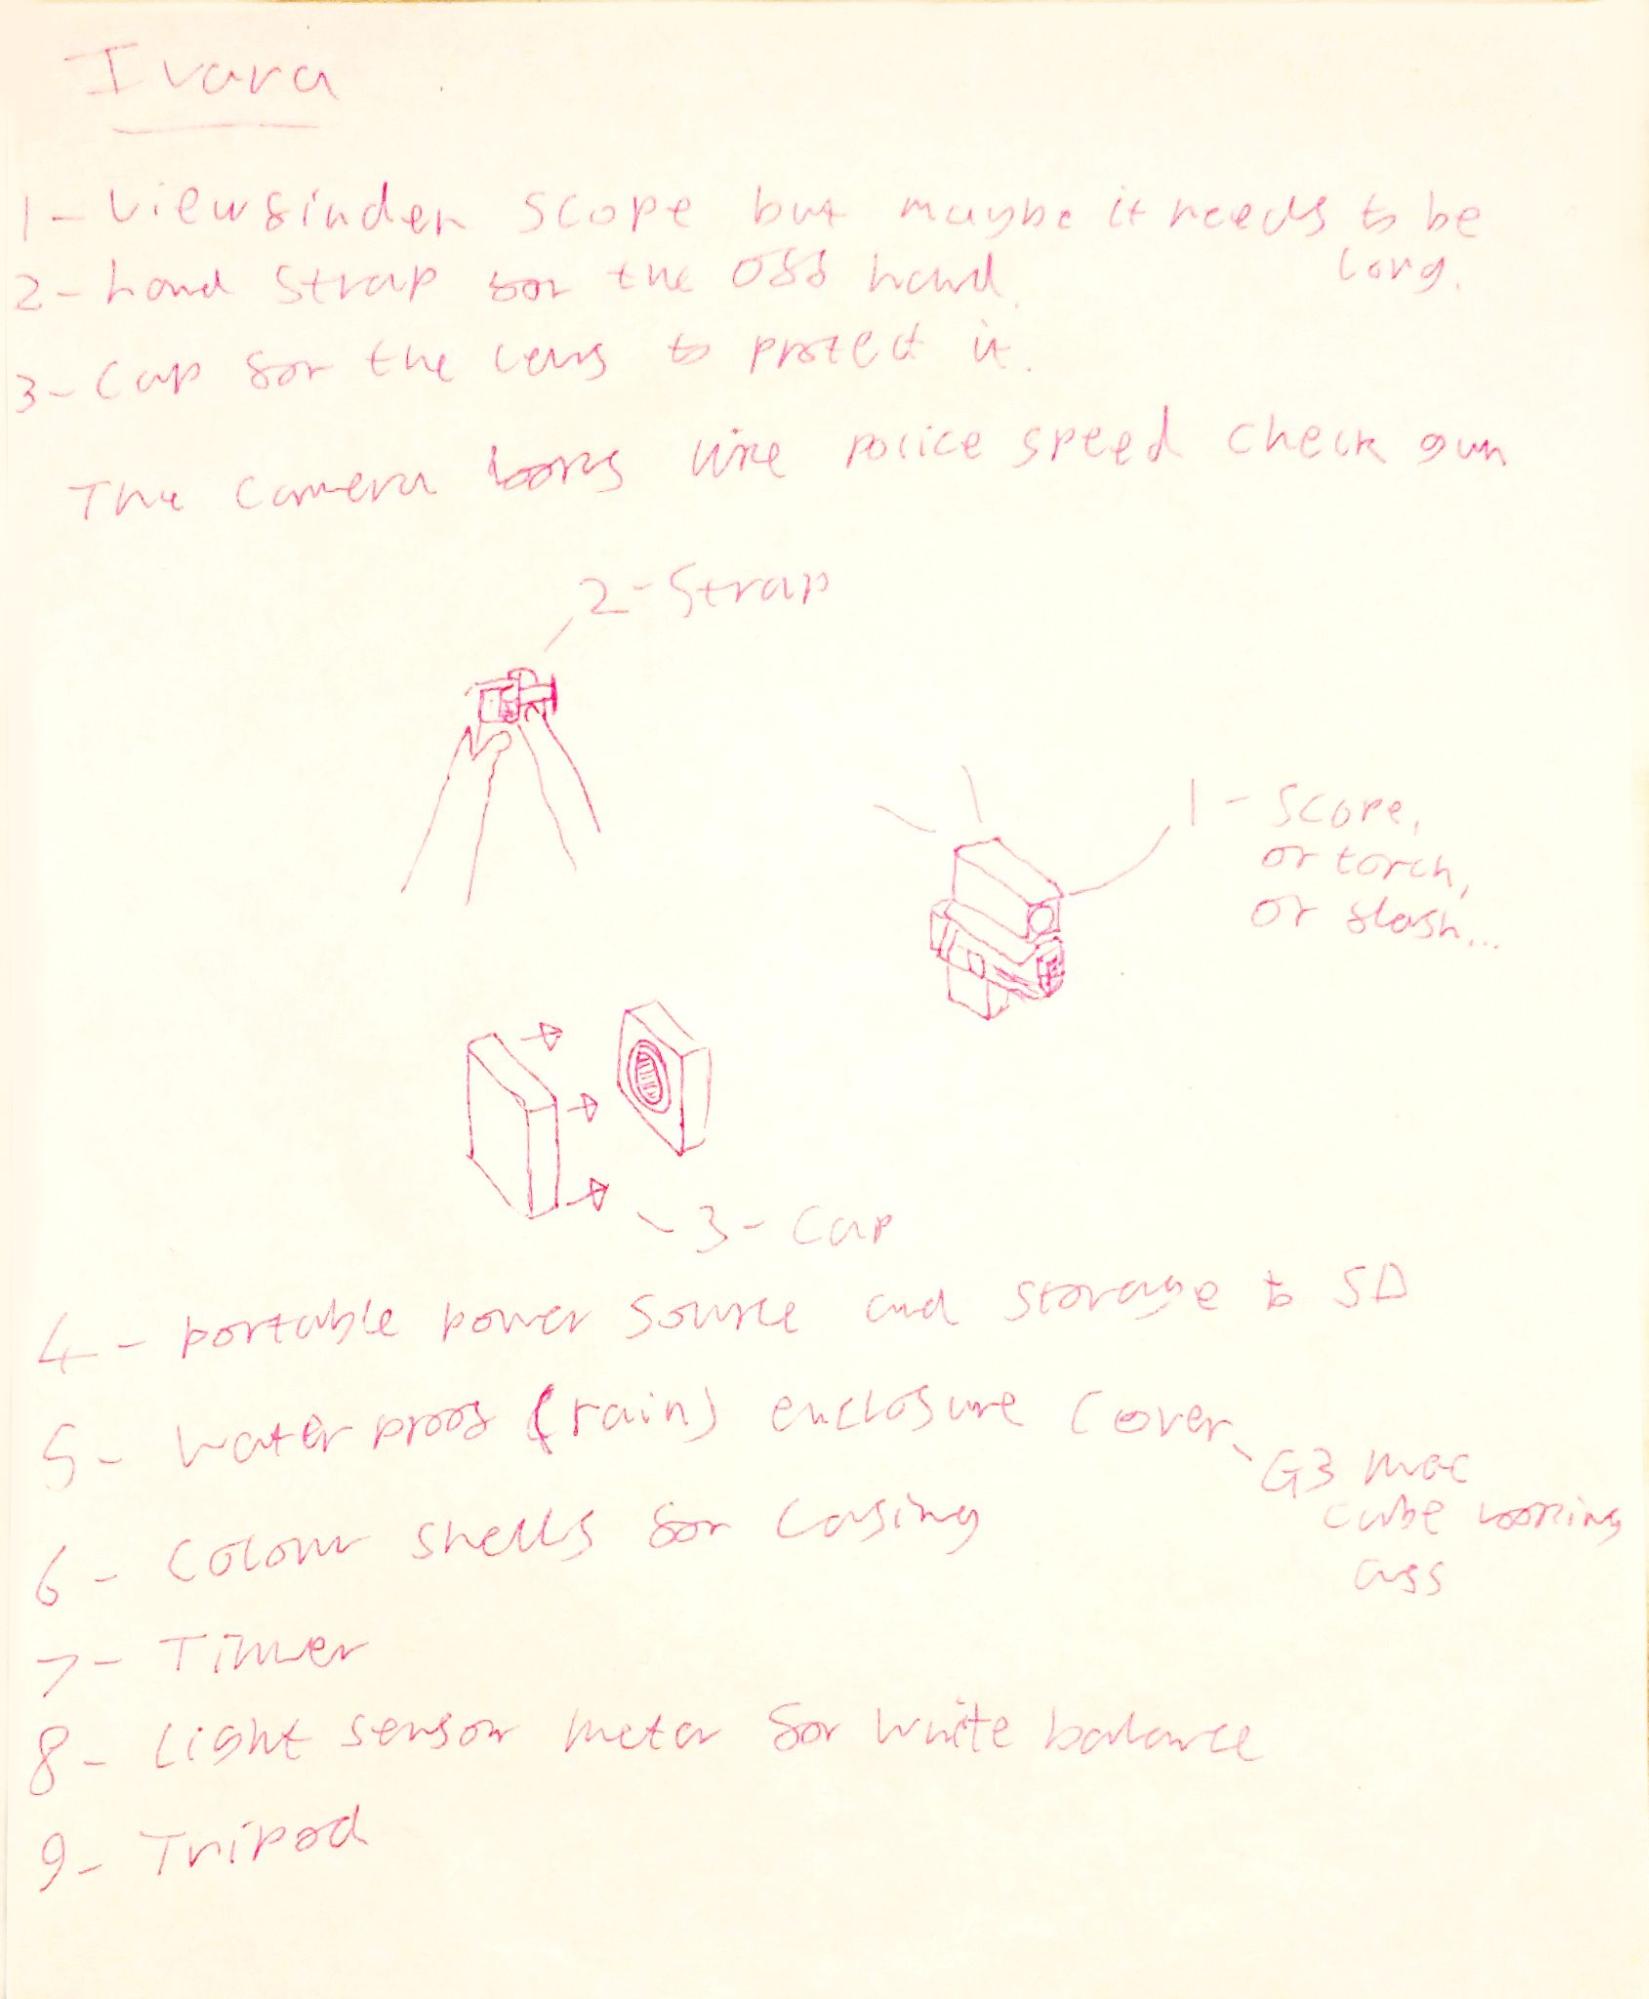 Ivara
1- Viewfinder scope but maybe it needs to be
long.
2- hand strap for the off hand.
3- Cap for the lens to protect it.
The camera looks like police speed check gun
2- Strap
1- Scope,
or torch,
or flash...
3- Cap
4- portable power source and storage to SD
5- Waterproof (rain) enclosure cover
G3 mac
cube looking
ass
6- Colour shells for casing
7- Timer
8- Light sensor meter for white balance
9- Tripod